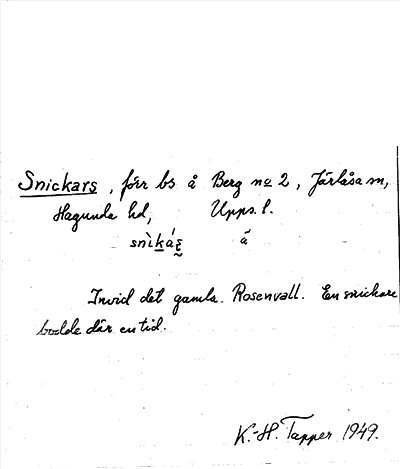 Snickars, förr bs å Berg no 2, Järlåsa sn,
Hagunda hd, Upps. l.
snìká̱ʂ ã
Invid det gamla Rosenvall. En snickare
bodde där en tid.
K.-H. Tapper 1949.